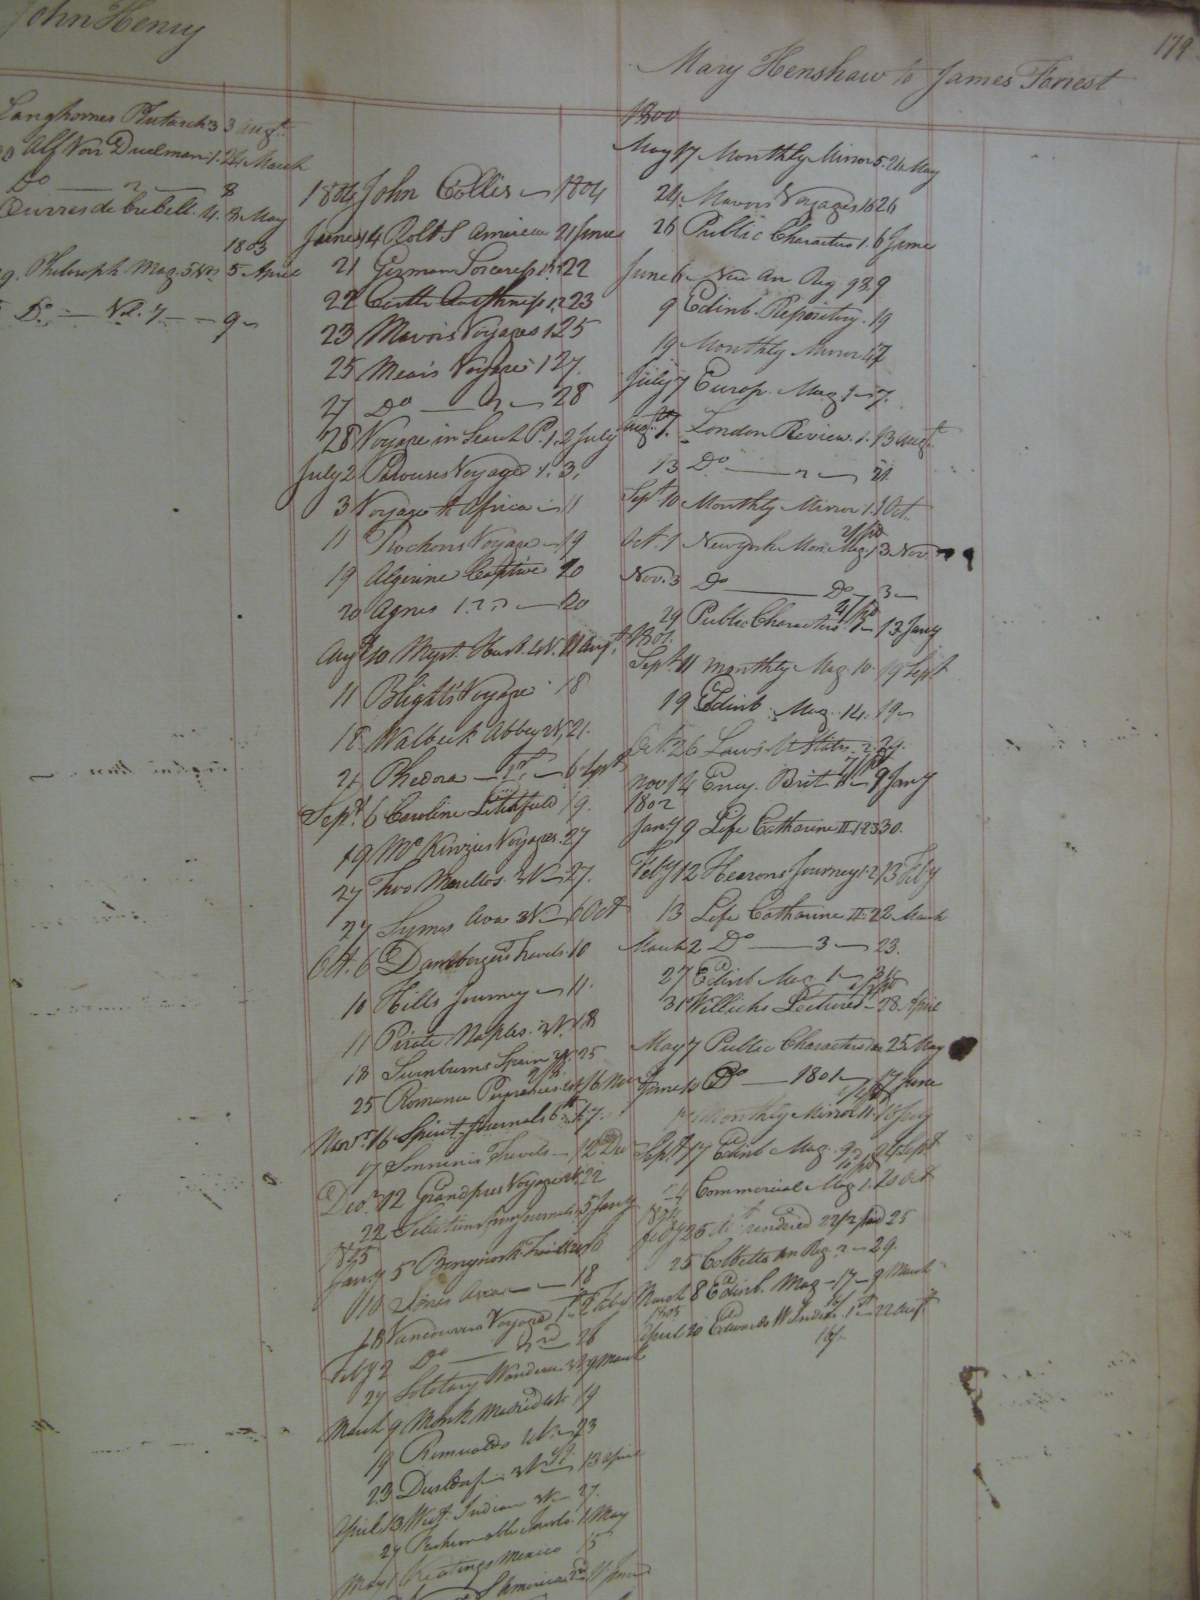 John Henry
Langhornes Plutarch 3 3 Augt.
Alf Von Duelman 1. 24 March
Do 8
4. 8 May
1803
9. Philosoph Mag. 5 5 April
Do No. 7 9
1804 John Collis 1804
June 14 Rolt S America 21 June
21 German Sorceress 22
22 23
23 Mavors Voyages 1 25
25 Mears Voyage 1 27.
27 Do 2 28
28 Voyage in Search P. 1. 2 July
July 2 Perouses Voyage 1. 3.
3 Voyage to Africa 11
11 Rochons Voyage 19
19 Algerine Captive 20
20 Agnes 1. 2. 3 20
Augt 10 Myst. Husb. 4 V. 11 Augt.
11 Blights Voyage 18
18 Walbeck Abbey 2 V. 21.
21 Phedora 1st. 6 Sept
Sept. 6 Caroline Litchfield 19.
19 McKinzies Voyages. 27
27 Two Marellos. 27.
27 Symes Ava 3 V 6 Oct
Oct. 6 Dambergers Travels 10
10 Hills Journey 11.
11 Pirate Naples. 3 V. 18
18 Swinburns Spain 2 V. 25
25 Romance Pyrenees 16 Nov
Novr. 16 Spirit Journals 17.
17 Sonninis Travels 12 Dec
Decr. 12 Grandpres Voyage 22
22 Selections from Journals 5 Jany
1805
Jany 5 6
10 Symes Ava 18
18 Vancouvers Voyage 1st. 2 Feby
Feby 2 Do 2nd 26
27 Solotary Wanderer 9 March
March 9 Monk Madrid 19
19 Romualdo 23
23 Dusseldorf 3 V 13 April
April 13 West Indian 27.
27 Fashionable 1 May
May 1 Keatings Mexico 15
America 11 June
179
Mary Henshaw to James Forrest
1800
May 17 Monthly Mirror 5. 24 May
24. Mavors Voyages 16 26
26 Public Characters 1. 6 June
June 6 New An Reg 98. 9
9 Edinb. Repository. 19
19 Monthly Mirror 17
July 7 Europ. Mag 1 7.
Augt. 7. London Review. 1. 13 Augt
13 Do 2 21
Sept 10 Monthly Mirror 1. 1 Oct.
Oct. 1 Newyork Mon. Mag. 1 3 Nov
Nov. 3 Do Do 3
29 Public Characters. 1 13 Jany
1801.
Sept. 11 Monthly Mag 10. 19 Sept
19 Edinb. Mag. 14. 19
Oct. 26 Laws U States. 2. 29.
Nov 14 Ency. Brit 9 Jany
1802
Jany 9 Life Catharine II 1 2 3 30.
Feby 12 Hearons Journey 1. 2 13 Feby
13 Life Catharine II 22 March
March 2 Do 3 23.
27 Edinb Mag 1 31
31 Willichs Lectures 28. April
May 7 Public Characters 25 May
June 10 Do 1801 17 June
Monthly Mirror 11. 10 July
Sept 17 Edinb Mag. 9 24 Sept
Commercial Mag 1. 20 Oct
1804
Feby 25 Act rendered 22/2 paid 25
25 Cobbetts An Reg 2 29.
March 8 Edinb. Mag 17 9 March
1805
April 20 Edwards W Indies 1st 22 Augt